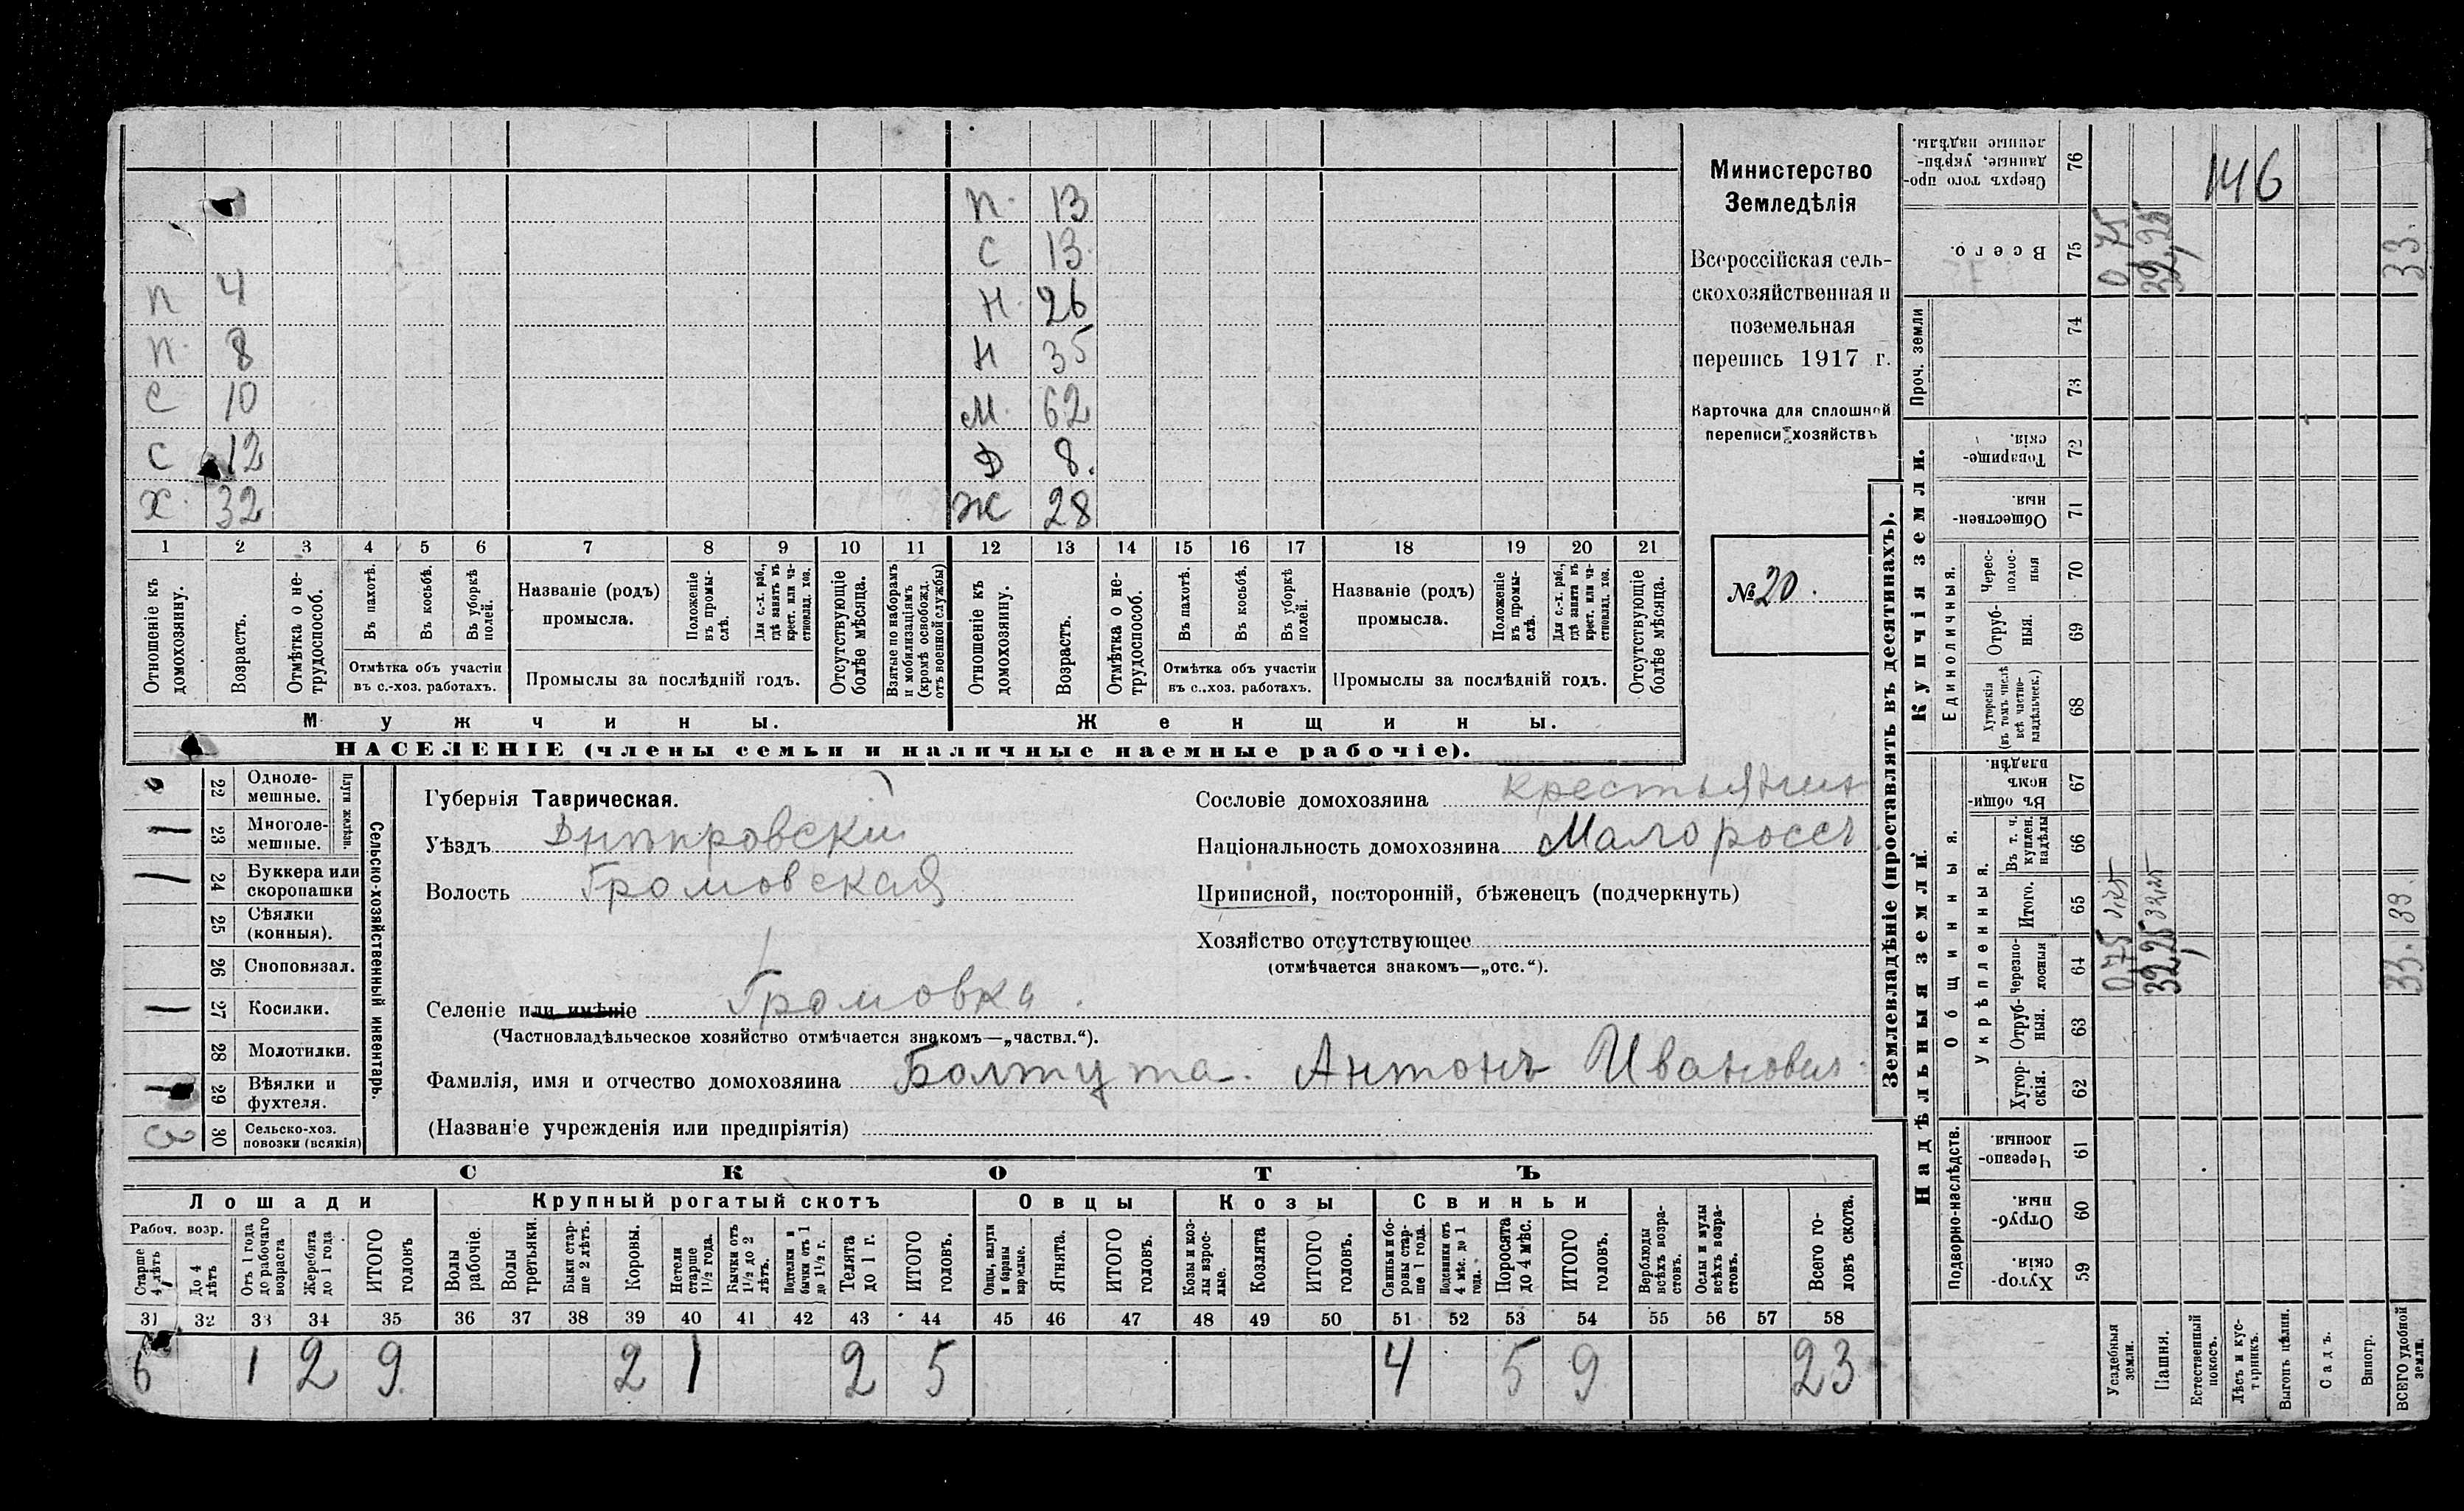 п. 13
с 13.
п 4 н. 26
п. 8 н 35
с 10 м. 62
с 12 Д 8.
х. 32 Ж 28
1 2 3 4 5 6 7 8 9 10 11 12 13 14 15 16 17 18 19 20 21
Отношеніе къ домохозяину.
Возрастъ.
Отмѣтка о не-трудоспособ.
Въ пахотѣ.
Въ косьбѣ.
Въ уборкѣ полей.
Отмѣтка объ участіи въ с.-хоз. работахъ.
Названіе (родъ) промысла.
Положеніе въ промы-слѣ.
Для с.-х. раб., гдѣ занятъ въ крест. или ча-стновлад. хоз.
Промыслы за послѣдній годъ.
Отсутствующіе болѣе мѣсяца.
Взятые по наборамъ и мобилизаціямъ (кромѣ освобожд. отъ военной службы)
Отношеніе къ домохозяину.
Возрастъ.
Отмѣтка о не-трудоспособ.
Въ пахотѣ.
Въ косьбѣ.
Въ уборкѣ полей.
Отмѣтка объ участіи въ с..хоз. работахъ.
Названіе (родъ) промысла.
Положеніе въ промы-слѣ.
Для с.-х. раб., гдѣ занята въ крест. или ча-стновлад. хоз.
Промыслы за послѣдній годъ.
Отсутствующіе болѣе мѣсяца.
Мужчины. Женщины.
НАСЕЛЕНІЕ (члены семьи и наличные наемные рабочіе).
Министерство
Земледѣлія
Всероссійская сель-
скохозяйственная и
поземельная
перепись 1917 г.
Карточка для сплошной
переписи хозяйствъ
№ 20.
Сельско-хозяйственный инвентарь.
Плуги желѣзн.
22 Одноле-мешные.
23 Многоле-мешные.
24 Буккера или скоропашки
25 Сѣялки (конныя).
26 Сноповязал.
27 Косилки.
28 Молотилки.
29 Вѣялки и фухтеля.
30 Сельско-хоз. повозки (всякія) 3
Губернія Таврическая.
Уѣздъ Днѣпровскій
Волость Громовская
Селеніе или имѣніе Громовка.
(Частновладѣльческое хозяйство отмѣчается знакомъ—„частвл.“).
Фамилія, имя и отчество домохозяина Болтута. Антонъ Иванович.
(Названіе учрежденія или предпріятія)
Сословіе домохозяина крестьянин
Національность домохозяина Малороссъ
Приписной, посторонній, бѣженецъ (подчеркнуть)
Хозяйство отсутствующее
(отмѣчается знакомъ—„отс.“).
СКОТЪ
Лошади Крупный рогатый скотъ Овцы Козы Свиньи
Рабоч. возр.
Старше 4 лѣтъ
До 4 лѣтъ
Отъ 1 года до рабочаго возраста
Жеребята до 1 года
ИТОГО головъ
Волы рабочіе.
Волы третьяки.
Быки стар-ше 2 лѣтъ.
Коровы.
Нетели старше 1½ года.
Бычки отъ 1½ до 2 лѣтъ.
Подтелки и бычки отъ 1 до 1½ г.
Телята до 1 г.
ИТОГО головъ.
Овцы, валухи и бараны взрослые.
Ягнята.
ИТОГО головъ.
Козы и коз-лы взрос-лые.
Козлята
ИТОГО головъ.
Свиньи и бо-ровы стар-ше 1 года.
Подсвинки отъ 4 мѣс. до 1 года.
Поросята до 4 мѣс.
ИТОГО головъ.
Верблюды всѣхъ возра-стовъ.
Ослы и мулы всѣхъ возра-стовъ.
Всего го-ловъ скота.
31 32 33 34 35 36 37 38 39 40 41 42 43 44 45 46 47 48 49 50 51 52 53 54 55 56 57 58
6 1 2 9. 2 1 2 5 4 5 9 23
Землевладѣніе (проставлять въ десятинахъ).
Купчія земли.
Надѣльныя земли.
Сверхъ того про-данные, укрѣп-ленные надѣлы. 76 146
Всего. 75 0,75 32,25 33.
Проч. земли 74
73
Товарище-скія. 72
Обществен-ныя. 71
Единоличныя.
Черес-полос-ныя 70
Отруб-ныя. 69
Хуторскія (въ томъ числѣ всѣ частно-владѣльческ.) 68
Общинныя.
Въ общин-номъ владѣн. 67
Укрѣпленныя.
Въ т. ч. куплен. надѣлы 66
Итого. 65 32,25 33.
Черезпо-лосныя 64 0,75 32,25 33.
Отруб-ныя. 63
Хутор-скія. 62
Подворно-наслѣдств.
Черезпо-лосныя. 61
Отруб-ныя. 60
Хутор-скія. 59
Усадебныя земли.
Пашня.
Естественный покосъ.
Лѣсъ и кус-тарникъ.
Выгонъ цѣлин.
Садъ.
Виногр.
ВСЕГО удобной земли.